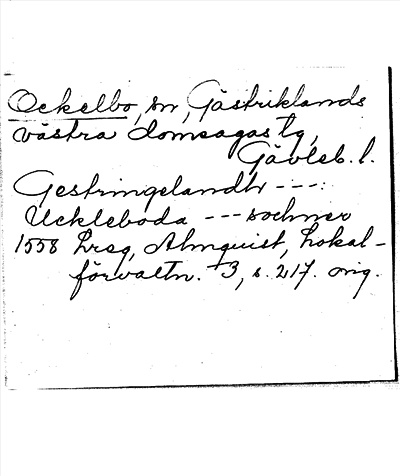 Ockelbo, sn, Gästriklands
västra domsagas tg,
Gävleb. l.
Gestringelandh ---:
Uckleboda --- sochner
1558 Lreg, Almquist, Lokal-
förvaltn. 3, s. 217. orig.